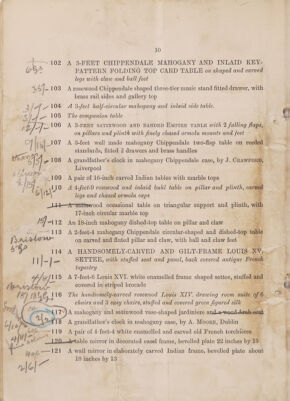 10
102 A 3-FEET CHIPPENDALE MAHOGANY AND INLAID KEY-
PATTERN FOLDING TOP CARD TABLE on shaped and carved
legs with claw and ball feet
103 A rosewood Chippendale shaped three-tier music stand fitted drawer, with
brass rail sides and gallery top
104 A 3-feet half-circular mahogany and inlaid side table.
105 The companion table
106 A 3-feet SATINWOOD AND BANDED EMPIRE TABLE with 2 falling flaps,
on pillars and plinth with finely chased ormolu mounts and feet
107 A 5-feet well made mahogany Chippendale two-flap table on reeded
standards, fitted 2 drawers and brass handles
108 A grandfather's clock in mahogany Chippendale case, by J. CRAWFORD,
Liverpool
109 A pair of 16-inch carved Indian tables with marble tops
110 A 4-feet-9 rosewood and inlaid buhl table on pillar and plinth, carved
legs and chased ormolu caps
111 A occasional table on triangular support and plinth, with
17-inch circular marble top
112 An 18-inch mahogany dished-top table on pillar and claw
113 A 2-feet-4 mahogany Chippendale circular-shaped and dished-top table
on carved and fluted pillar and claw, with ball and claw feet
114 A HANDSOMELY-CARVED AND GILT-FRAME LOUIS XV.
SETTEE, with stuffed seat and panel, back covered antique French
tapestry
115 A 7-feet-6 Louis XVI. white enamelled frame shaped settee, stuffed and
covered in striped brocade
116 The handsomely-carved rosewood Louis XIV. drawing room suite of 6
chairs and 3 easy chairs, stuffed and covered green figured silk
117 A mahogany and satinwood vase-shaped jardiniere
118 A grandfather's clock in mahogany case, by A. MOORE, Dublin
119 A pair of 4-feet-4 white enamelled and carved old French torchières
120 A table mirror in decorated easel frame, bevelled plate 22 inches by 15
121 A wall mirror in elaborately carved Indian frame, bevelled plate about
18 inches by 13